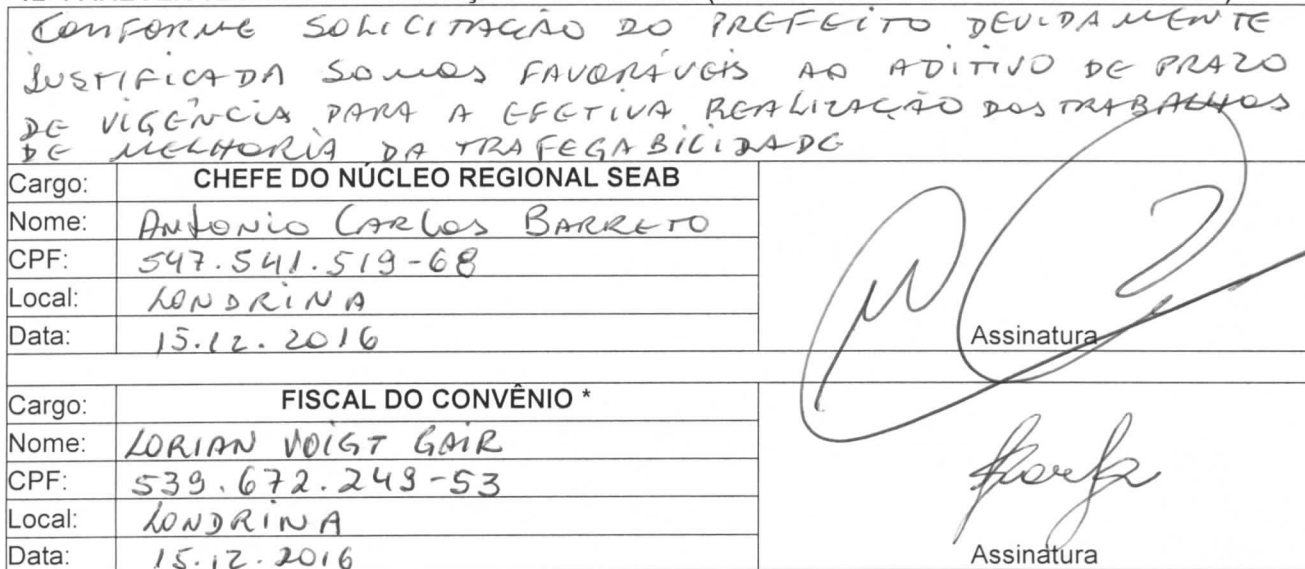 CONFORME SOLICITAÇÃO DO PREFEITO DEVIDAMENTE
JUSTIFICADA SOMOS FAVORÁVEIS AO ADITIVO DE PRAZO
DE VIGÊNCIA PARA A EFETIVA REALIZAÇÃO DOS TRABALHOS
DE MELHORIA DA TRAFEGABILIDADE
Cargo: CHEFE DO NÚCLEO REGIONAL SEAB
Nome: ANTONIO CARLOS BARRETO
CPF: 547.541.519-68
Local: LONDRINA
Data: 15.12.2016
Assinatura
Cargo: FISCAL DO CONVÊNIO *
Nome: LORIAN VOIGT GAIR
CPF: 539.672.249-53
Local: LONDRINA
Data: 15.12.2016
Assinatura